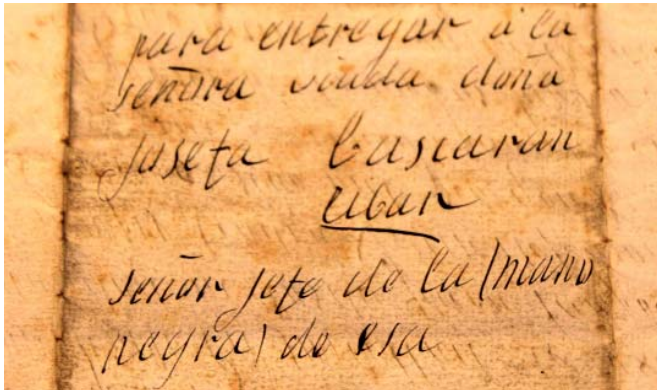 para entregar á la
señora viuda doña
Josefa Bascaran
Eibar
señor jefe de la (mano
negra) de esa